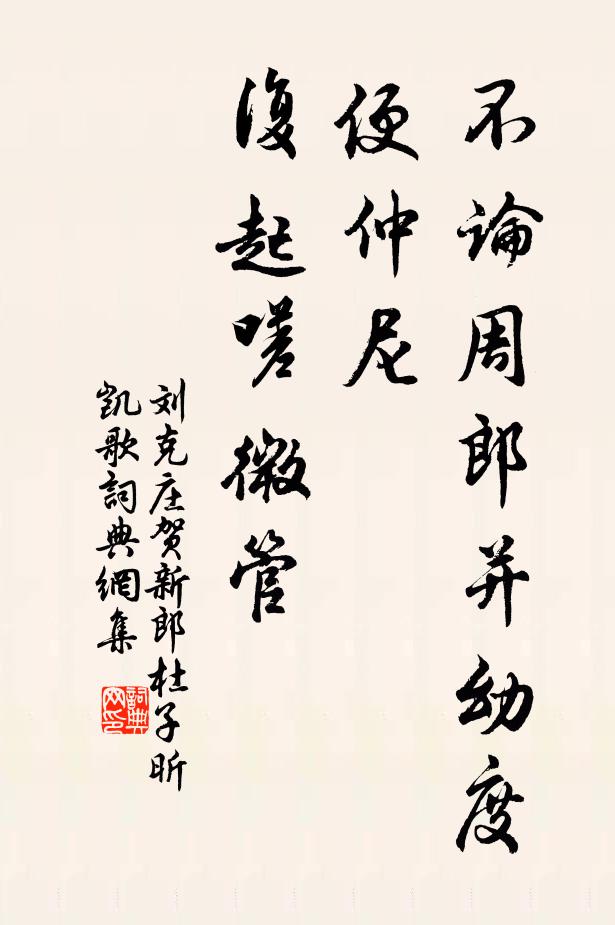 不論周郎并幼度
便仲尼
復起嗟微管
刘克庄贺新郎杜子昕
凯歌詞典網集
詞典网印